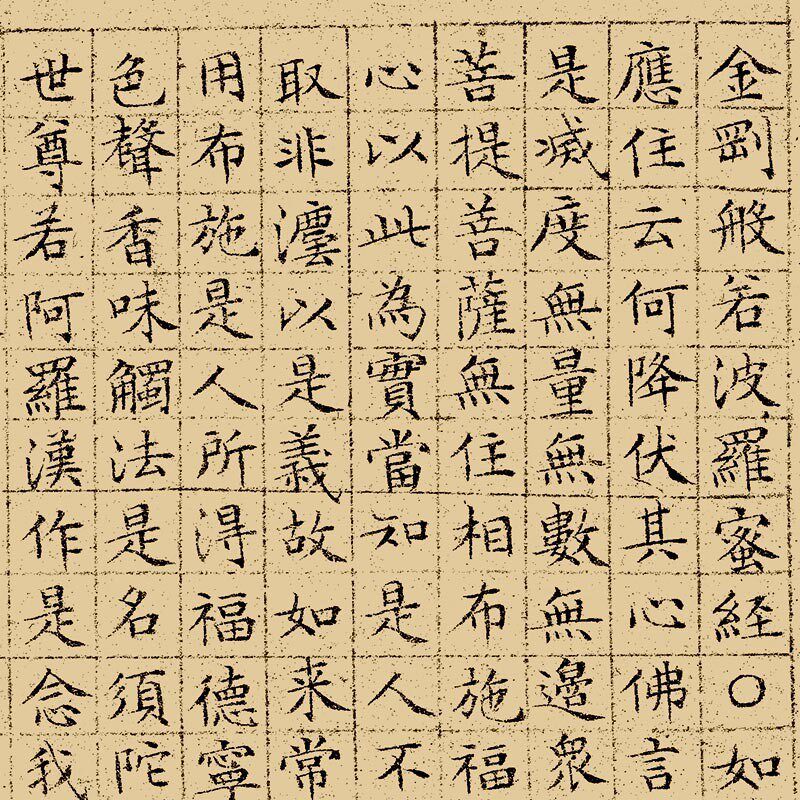 金剛般若波羅蜜経○如
應住云何降伏其心佛言
是滅度無量無數無邊衆
菩提菩薩無住相布施福
心以此為實當知是人不
取非灋以是義故如来常
用布施是人所得福德寧
色聲香味觸法是名須陀
世尊若阿羅漢作是念我